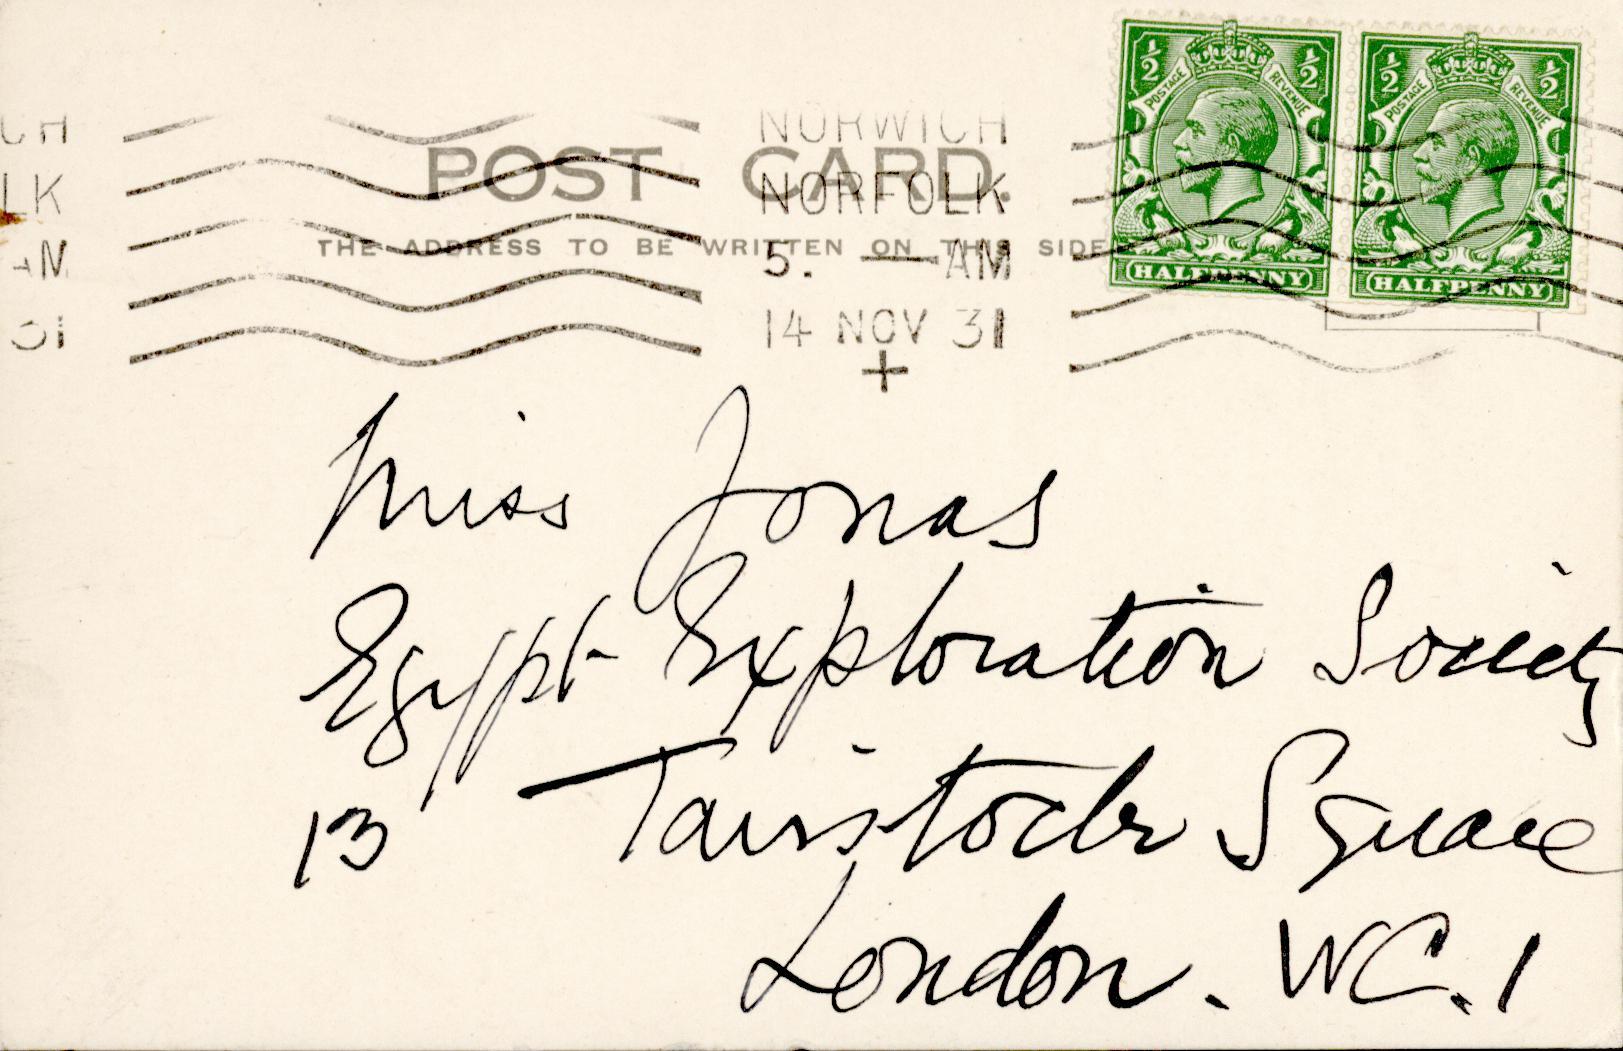 ½ POSTAGE REVENUE ½ HALFPENNY
½ POSTAGE REVENUE ½ HALFPENNY
CH
LK
AM
31
NORWICH
NORFOLK
5. — AM
14 NOV 31
+
POST CARD.
THE ADDRESS TO BE WRITTEN ON THIS SIDE
Miss Jonas
Egypt Exploration Society
13 Tavistock Square
London. WC.1